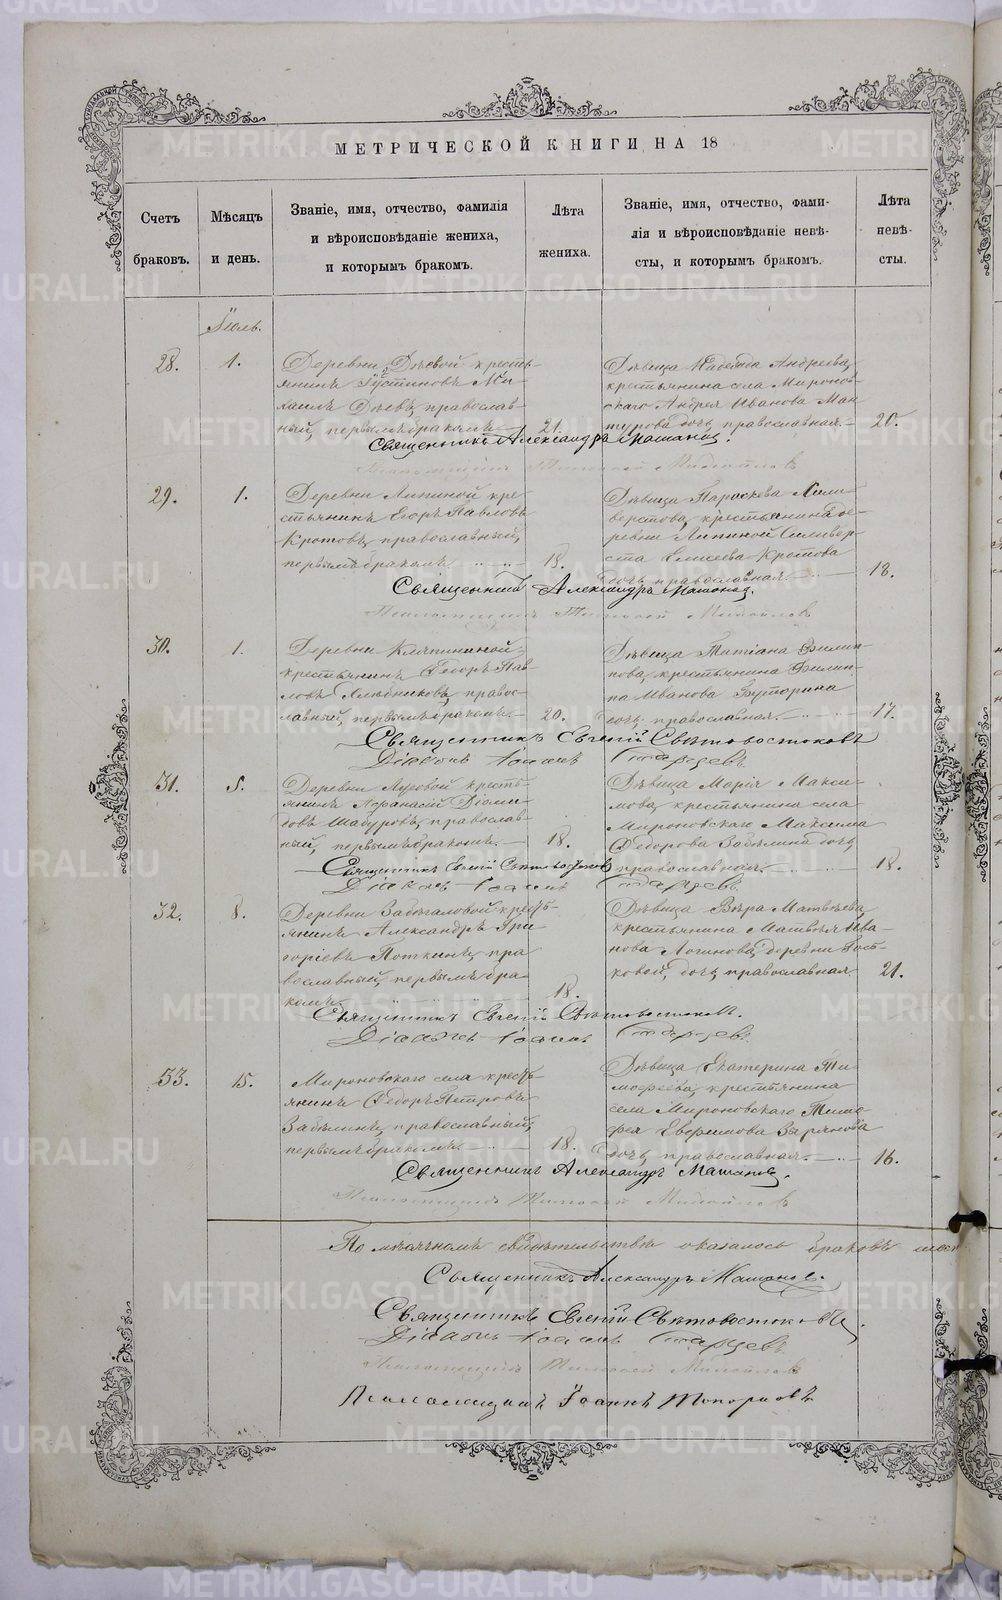 МЕТРИЧЕСКОЙ КНИГИ НА 18
Счетъ браковъ.
Мѣсяцъ и день.
Званіе, имя, отчество, фамилія
и вѣроисповѣданіе жениха,
и которымъ бракомъ.
Лѣта жениха.
Званіе, имя, отчество, фами-
лія и вѣроисповѣданіе невѣ-
сты, и которымъ бракомъ.
Лѣта невѣ-
сты.
Іюль.
28. 1.
Деревни кресть-
янинъ Іустиновъ Ми-
хаилъ православ-
ный, первымъ бракомъ. 21.
Дѣвица Надежда Андреева,
крестьянина села Миронов-
скаго Андрея Иванова Ман-
турова дочь, православная. 20.
Священникъ Александръ Машановъ.
Псаломщикъ Тимофей Михайловъ
29. 1.
Деревни Липиной кре-
стьянинъ Егоръ Павловъ
Кротовъ, православный,
первымъ бракомъ. 18.
Дѣвица Параскева Сили-
верстова, крестьянина де-
ревни Липиной Сильвер-
ста Елисеева Кротова
дочь, православная. 18.
Священникъ Александръ Машановъ.
Псаломщикъ Тимофей Михайловъ
30. 1.
Деревни
крестьянинъ Ѳедоръ Пав-
ловъ правос-
лавный, первымъ бракомъ. 20.
Дѣвица Татіана Филип-
пова, крестьянина Филип-
па Иванова Буторина
дочь, православная. 17.
Священникъ Евгеній Свѣтовостоковъ
Діаконъ Іоаннъ Старцевъ
31. 5.
Деревни Лусовой кресть-
янинъ Афанасій Діоми-
довъ Шабуровъ, православ-
ный, первымъ бракомъ. 18.
Дѣвица Марія Макси-
мова, крестьянина села
Мироновскаго Максима
Ѳедорова Забѣлина дочь,
православная. 18.
Священникъ Евгеній Свѣтовостоковъ
Діаконъ Іоаннъ Старцевъ
32. 8.
Деревни Забѣгаловой кресть-
янинъ Александръ Гри-
горіевъ Поткинъ, пра-
вославный, первымъ бра-
комъ. 18.
Дѣвица Вѣра Матвѣева,
крестьянина Матвѣя Ива-
нова Логинова, деревни
дочь, православная. 21.
Священникъ Евгеній Свѣтовостоковъ.
Діаконъ Іоаннъ Старцевъ.
33. 15.
Мироновскаго села кресть-
янинъ Ѳедоръ Петровъ
Забѣлинъ, православный,
первымъ бракомъ. 18.
Дѣвица Екатерина Ти-
мофеева, крестьянина
села Мироновскаго Тимо-
фея Евфимова Зырянова
дочь, православная. 16.
Священникъ Александръ Машановъ.
Псаломщикъ Тимофей Михайловъ
По мѣсячномъ свидѣтельствѣ оказалось браковъ шест
Священникъ Александръ Машановъ.
Священникъ Евгеній Свѣтовостоковъ.
Діаконъ Іоаннъ Старцевъ.
Псаломщикъ Тимофей Михайловъ
Псаломщикъ Іоаннъ Топорковъ
METRIKI.GASO-URAL.RU